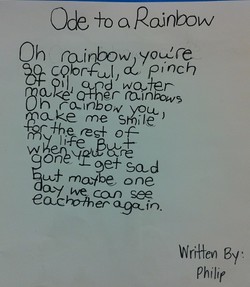 Ode to a Rainbow
Oh rainbow, you're
so colorful, a pinch
of oil and water
make other rainbows
Oh rainbow you,
make me smile
for the rest of
my life. But
when you are
gone I get sad
but maybe one
day we can see
eachother again.
Written By:
Philip